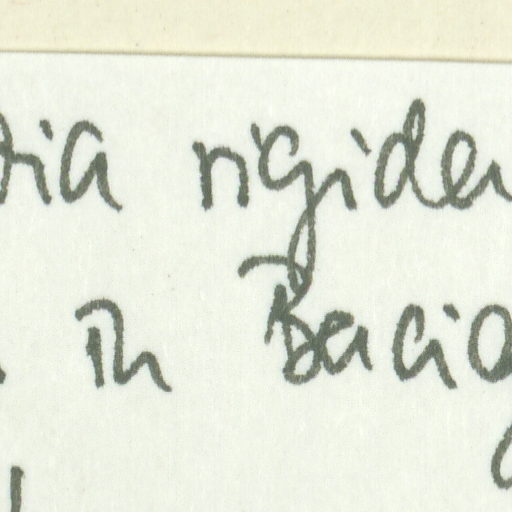 ia rigiden
in Bacig